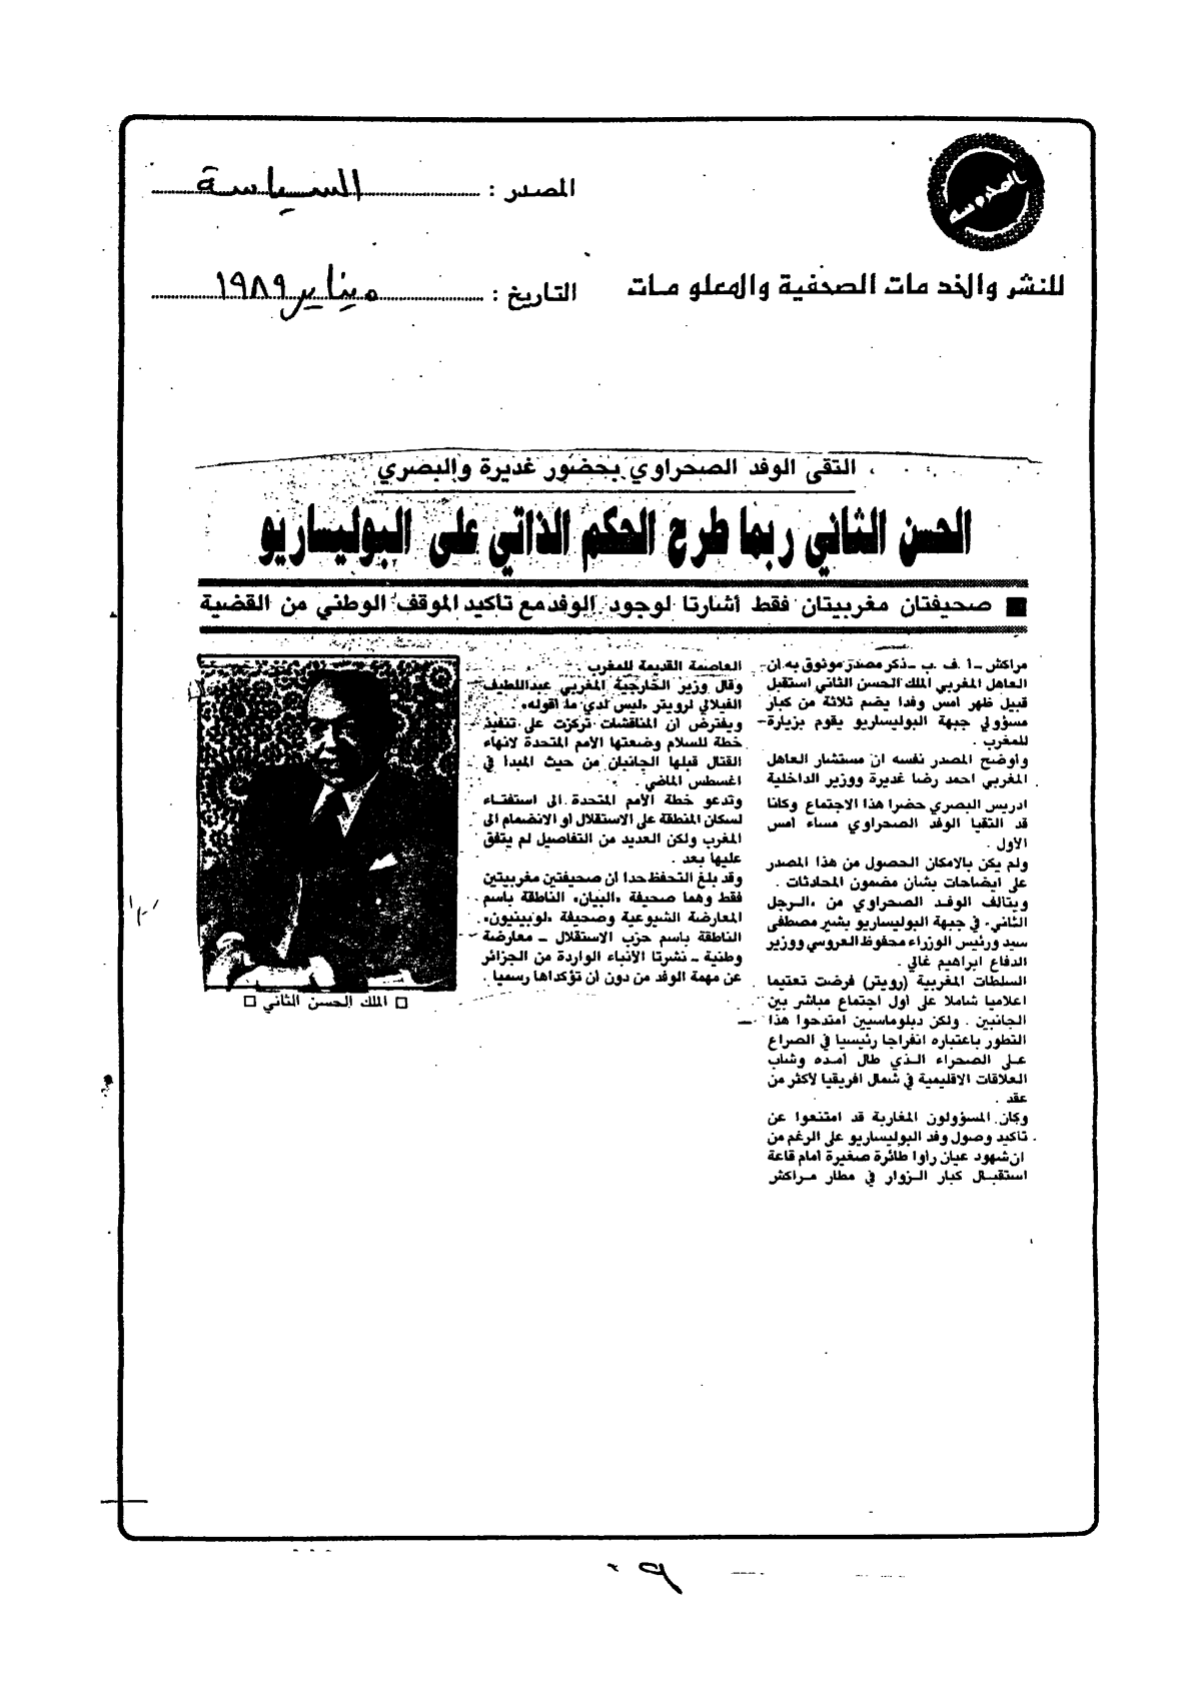 المصدر : السياسة
للنشر والخدمات الصحفية والمعلومات
التاريخ : ٥ يناير ١٩٨٩
التقى الوفد الصحراوي بحضور غديرة والبصري
الحسن الثاني ربما طرح الحكم الذاتي على البوليساريو
■ صحيفتان مغربيتان فقط أشارتا لوجود الوفد مع تأكيد الموقف الوطني من القضية
مراكش ـ ا. ف. ب ـ ذكر مصدر موثوق به ان
العاهل المغربي الملك الحسن الثاني استقبل
قبيل ظهر امس وفدا يضم ثلاثة من كبار
مسؤولي جبهة البوليساريو يقوم بزيارة
للمغرب .
واوضح المصدر نفسه ان مستشار العاهل
المغربي احمد رضا غديرة ووزير الداخلية
ادريس البصري حضرا هذا الاجتماع وكانا
قد التقيا الوفد الصحراوي مساء امس
الاول .
ولم يكن بالامكان الحصول من هذا المصدر
على ايضاحات بشأن مضمون المحادثات .
ويتألف الوفد الصحراوي من «الرجل
الثاني» في جبهة البوليساريو بشير مصطفى
سيد ورئيس الوزراء محفوظ العروسي ووزير
الدفاع ابراهيم غالي .
السلطات المغربية (رويتر) فرضت تعتيما
اعلاميا شاملا على اول اجتماع مباشر بين
الجانبين . ولكن دبلوماسيين امتدحوا هذا
التطور باعتباره انفراجا رئيسيا في الصراع
على الصحراء الذي طال أمده وشاب
العلاقات الاقليمية في شمال افريقيا لأكثر من
عقد .
وكان المسؤولون المغاربة قد امتنعوا عن
تأكيد وصول وفد البوليساريو على الرغم من
ان شهود عيان رأوا طائرة صغيرة امام قاعة
استقبال كبار الزوار في مطار مراكش
العاصمة القديمة للمغرب .
وقال وزير الخارجية المغربي عبداللطيف
الفيلالي لرويتر «ليس لدي ما أقوله» .
ويفترض ان المناقشات تركزت على تنفيذ
خطة للسلام وضعتها الأمم المتحدة لانهاء
القتال قبلها الجانبان من حيث المبدأ في
اغسطس الماضي .
وتدعو خطة الأمم المتحدة الى استفتاء
لسكان المنطقة على الاستقلال او الانضمام الى
المغرب ولكن العديد من التفاصيل لم يتفق
عليها بعد .
وقد بلغ التحفظ حدا ان صحيفتين مغربيتين
فقط وهما صحيفة «البيان» الناطقة باسم
المعارضة الشيوعية وصحيفة «لوبينيون»
الناطقة باسم حزب الاستقلال ـ معارضة
وطنية ـ نشرتا الأنباء الواردة من الجزائر
عن مهمة الوفد من دون أن تؤكداها رسميا .
□ الملك الحسن الثاني □